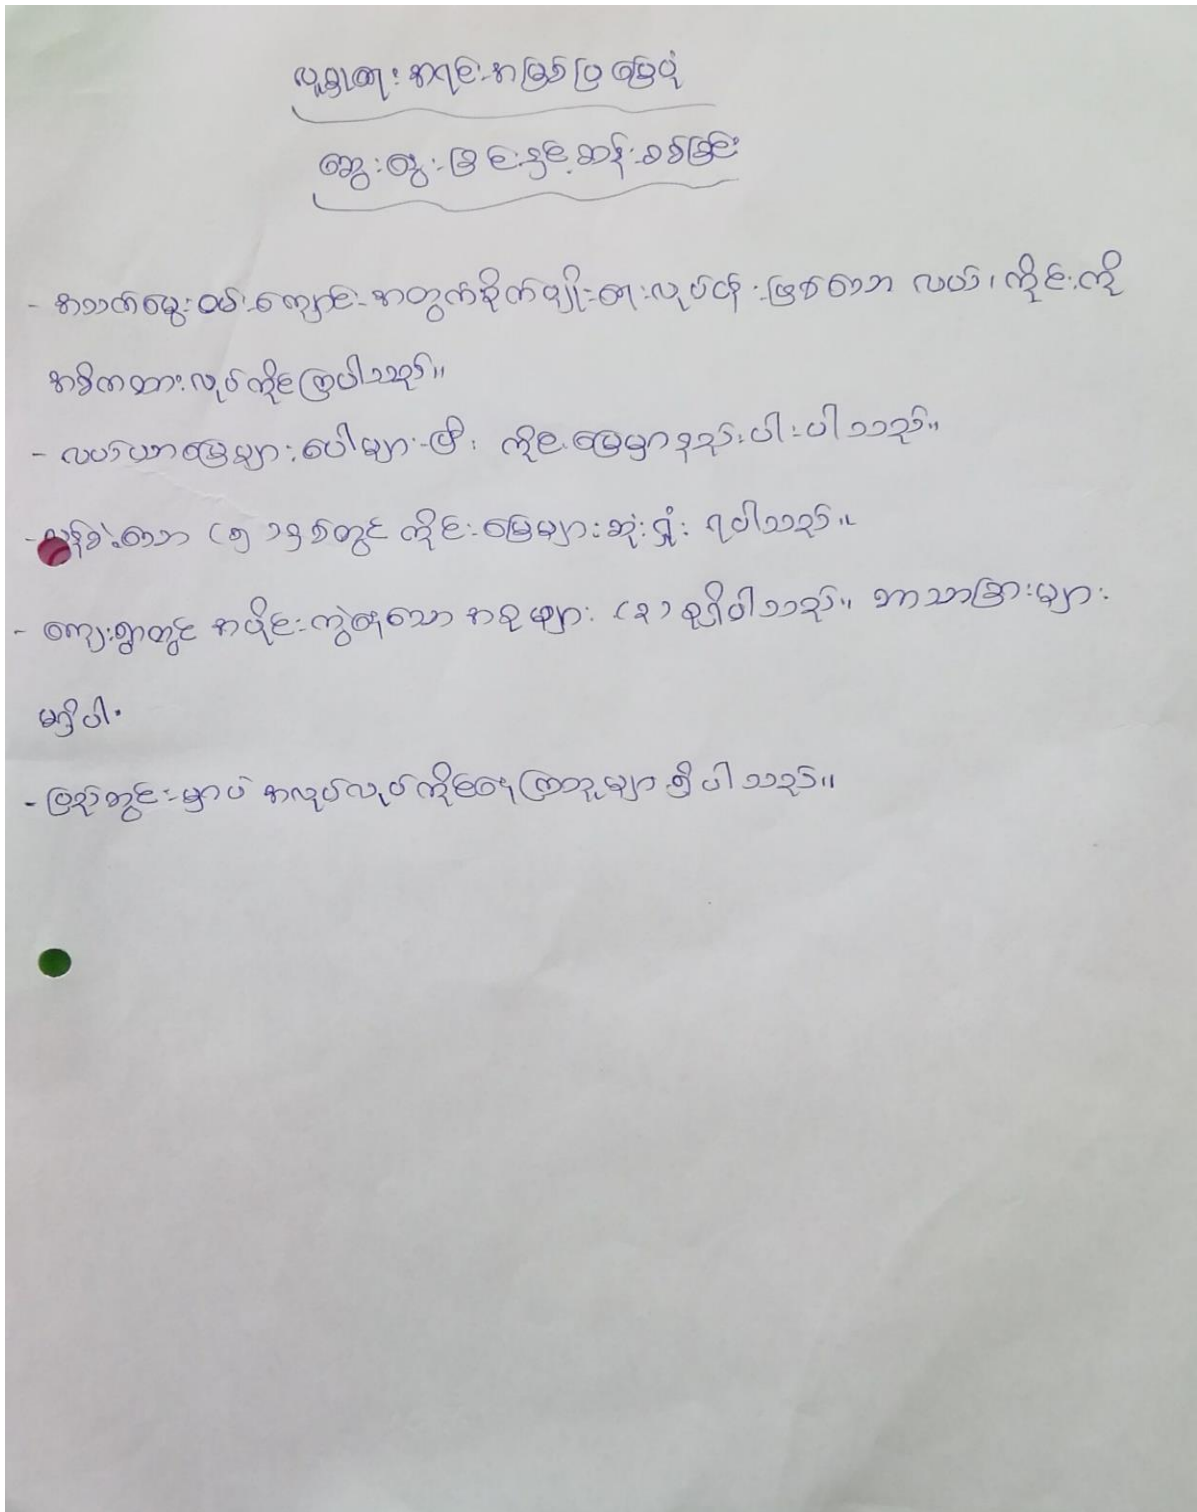 လူမှုရေးအရင်းအမြစ်ပြမြေပုံ
ဆွေးနွေးခြင်းနှင့်ဆန်းစစ်ခြင်း
- အသက်မွေးဝမ်းကျောင်းအတွက်စိုက်ပျိုးရေးလုပ်ငန်းဖြစ်သော လယ်၊ကိုင်းကို
အဓိကထားလုပ်ကိုင်ကြပါသည်။
- လယ်ယာမြေများပေါများပြီး ကိုင်းမြေမှာနည်းပါးပါသည်။
- လွန်ခဲ့သော (၅) နှစ်တွင် ကိုင်းမြေများဆုံးရှုံးရပါသည်။
- ကျေးရွာတွင် အပိုင်းကွဲနေသော အစုများ (၃) စုရှိပါသည်။ ဘာသာခြားများ
မရှိပါ။
- ပြည်တွင်းမှာပဲ အလုပ်လုပ်ကိုင်နေကြသူများရှိပါသည်။